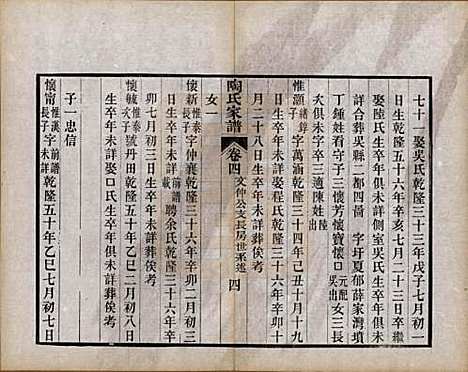 七十一娶吳氏乾隆三十三年戊子七月初一
日生乾隆五十六年辛亥七月二十三日卒繼
娶陸氏生卒年俱未詳側室吳氏生卒年俱未
詳合葬吳縣二都四啚 字圩夏郁薛家灣墳
丁鍾姓看守子三懷芳懷寶懷口元配吳出女三長
次俱未字三適陳姓陸出
惟灝緒錚子字萬涵乾隆三十四年己丑十月十九
日生卒年未詳娶程氏乾隆三十六年辛卯十
月二十八日生卒年未詳葬俟考
女一
陶氏家譜 卷四 文仲公支長房世系述 四
懷新惟泰長子字仲襄乾隆三十六年辛卯二月初三
日生卒年未詳前譜載聘余氏乾隆三十六年辛
卯七月初三日生卒年未詳葬俟考
懷毓惟泰次子號丹田乾隆五十年乙巳二月初八日
生卒年未詳娶口氏生卒年俱未詳葬俟考
子一忠信
懷甯惟漢長子字前譜未詳乾隆五十年乙巳七月初七日